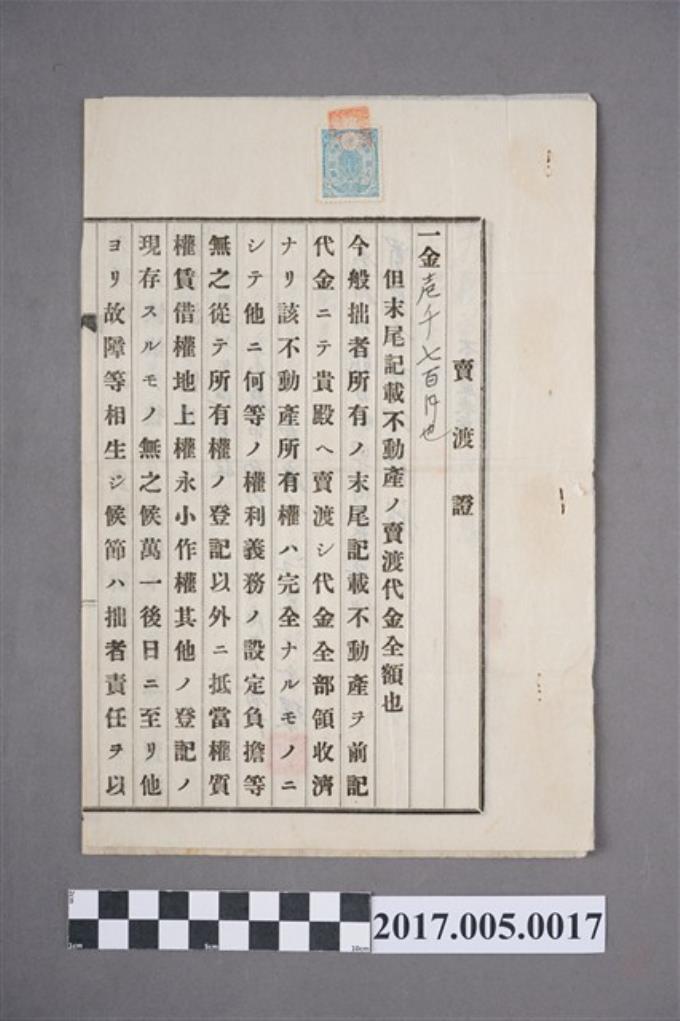 賣渡證
一金壱千七百円也
但末尾記載不動產ノ賣渡代金全額也
今般拙者所有ノ末尾記載不動產ヲ前記
代金ニテ貴殿ヘ賣渡シ代金全部領收濟
ナリ該不動產所有權ハ完全ナルモノニ
シテ他ニ何等ノ權利義務ノ設定負擔等
無之從テ所有權ノ登記以外ニ抵當權質
權賃借權地上權永小作權其他ノ登記ノ
現存スルモノ無之候萬一後日ニ至リ他
ヨリ故障等相生ジ候節ハ拙者責任ヲ以
2017.005.0017
1cm
5cm
10cm